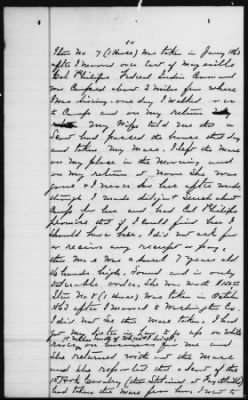 10
Item No. 7 (1 Horse) was taken in Jany 1863
after I moved over east of Maysville
Col Philips Federal Indian Command
was Camped about 2 miles from where
I was living. one day I walked over
to Camp and on my return
My Wife told me that a
Scout had passed the house that day
and taken my Mare. I left the Mare
on my place in the Morning and
on my return at Noon She was
gone & I never saw her afterwards
though I made diligent Search about
Camp for her and had Col Philips
promise that if I could find her I
should have her. I did not ask for
or receive any receipt or pay.
this Mare was about 7 years old
hands high. Sound and in only
tolerable order. She was worth
Item No. 8 (1 Horse) was taken in Octbr
1863 after I moved to Washington Co.
I did not see this Mare taken. I had
got my Sister in Law to go up on White
river on business for me and
She returned without the Mare
and she reported that a Scout of the
Cavalry (then Stationed at Fayetteville)
had taken the Mare from her. I went to